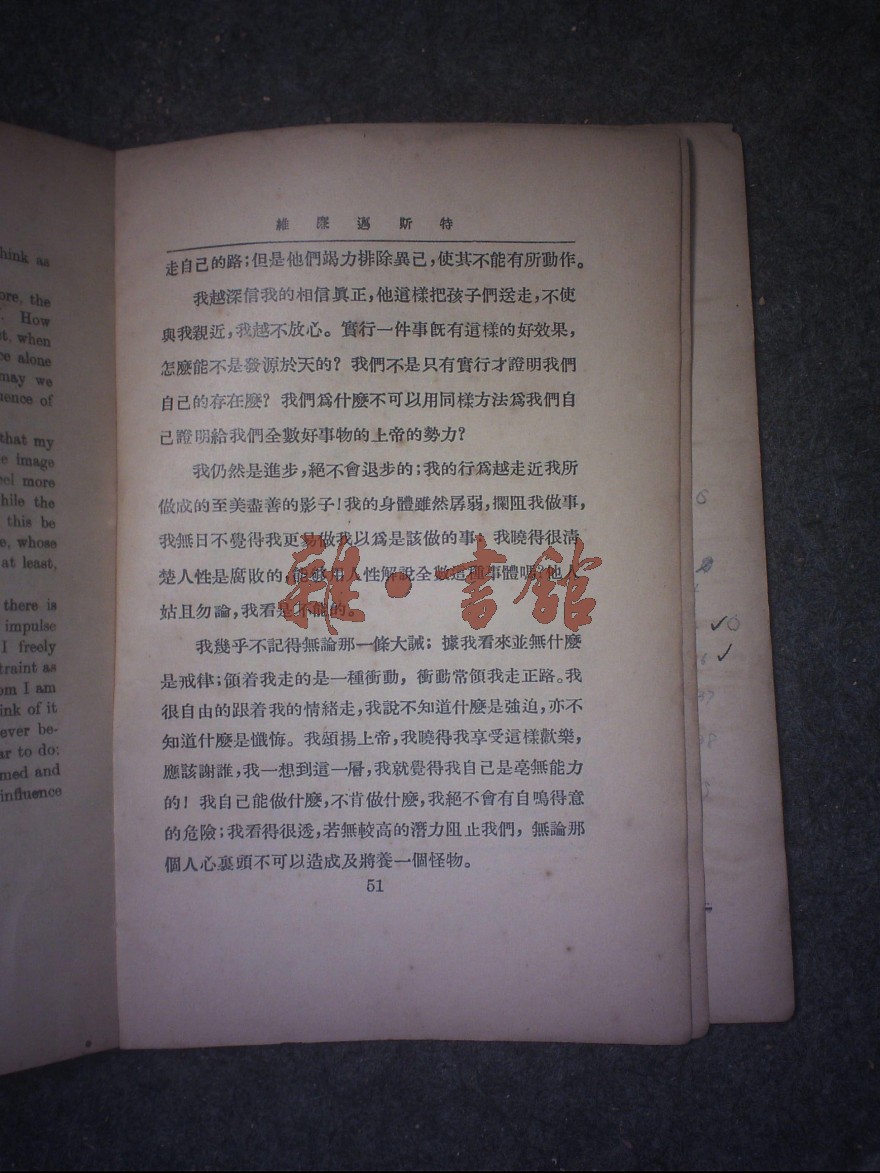 hink as
ore, the
How
st, when
ce alone
may we
uence of
that my
e image
eel more
hile the
this be
e, whose
at least,
there is
impulse
I freely
traint as
om I am
ink of it
ever be-
ar to do:
med and
influence
維廉邁斯特
走自己的路;但是他們竭力排除異己,使其不能有所動作。
我越深信我的相信眞正,他這樣把孩子們送走,不使
與我親近,我越不放心。實行一件事旣有這樣的好效果,
怎麽能不是發源於天的?我們不是只有實行才證明我們
自己的存在麽?我們爲什麽不可以用同樣方法爲我們自
己證明給我們全數好事物的上帝的勢力?
我仍然是進步,絕不會退步的;我的行爲越走近我所
做成的至美盡善的影子!我的身體雖然孱弱,攔阻我做事,
我無日不覺得我更易做我以爲是該做的事;我曉得很淸
楚人性是腐敗的,能够用人性解說全數這種事體嗎?他人
姑且勿論,我看是不能的。
我幾乎不記得無論那一條大誡;據我看來並無什麽
是戒律;領着我走的是一種衝動,衝動常領我走正路。我
很自由的跟着我的情緒走,我說不知道什麽是強迫,亦不
知道什麽是懺悔。我頌揚上帝,我曉得我享受這樣歡樂,
應該謝誰,我一想到這一層,我就覺得我自己是毫無能力
的!我自己能做什麽,不肯做什麽,我絕不會有自鳴得意
的危險;我看得很透,若無較高的潛力阻止我們,無論那
個人心裏頭不可以造成及將養一個怪物。
51
雜·書館